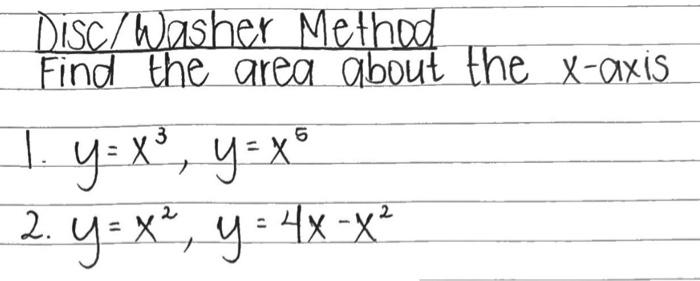 Disc/Washer Method
Find the area about the x-axis
1. y=x³, y=x⁵
2. y=x², y=4x-x²